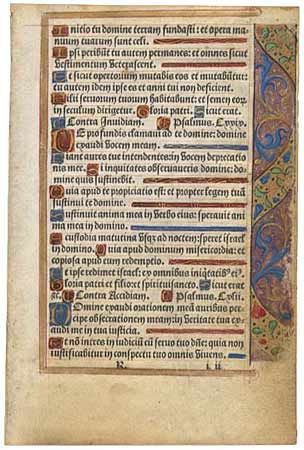 Initio tu domine terram fundasti: et opera ma
nuum tuarum sunt celi.
Ipsi peribūt tu autem permanes: et omnes sicut
vestimentum veterascent.
Et sicut opertorium mutabis eos et mutabūtur:
tu autem idem ipse es et anni tui non deficient.
Filii seruorum tuorum habitabunt: et semen eorū
in seculum dirigetur. Gloria patri. Sicut erat.
Contra Inuidiam. Psalmus.
De profundis clamaui ad te domine: domine
exaudi vocem meam.
Fiant aures tue intendentes: in vocem deprecatio
nis mee. Si iniquitates obseruaueris domine: do
mine quis sustinebit.
Quia apud te propiciatio est: et propter legem tuā
sustinui te domine.
Sustinuit anima mea in verbo eius: sperauit ani
ma mea in domino.
A custodia matutina vsqȝ ad noctem: speret israel
in domino. Quia apud dominum misericordia: et
copiosa apud eum redemptio.
Et ipse redimet israel: ex omnibus iniqtatibꝰ eiꝰ.
Gloria patri et filio et spiritui sancto. Sicut erat
Contra Accidiam. Psalmus. Cxlii.
Domine exaudi orationem meā auribus perci
pe obsecrationem meam: in veritate tua ex
audi me in tua iusticia.
Et nō intres in iudiciū cū seruo tuo dñe: quia non
iustificabitur in conspectu tuo omnis viuens.